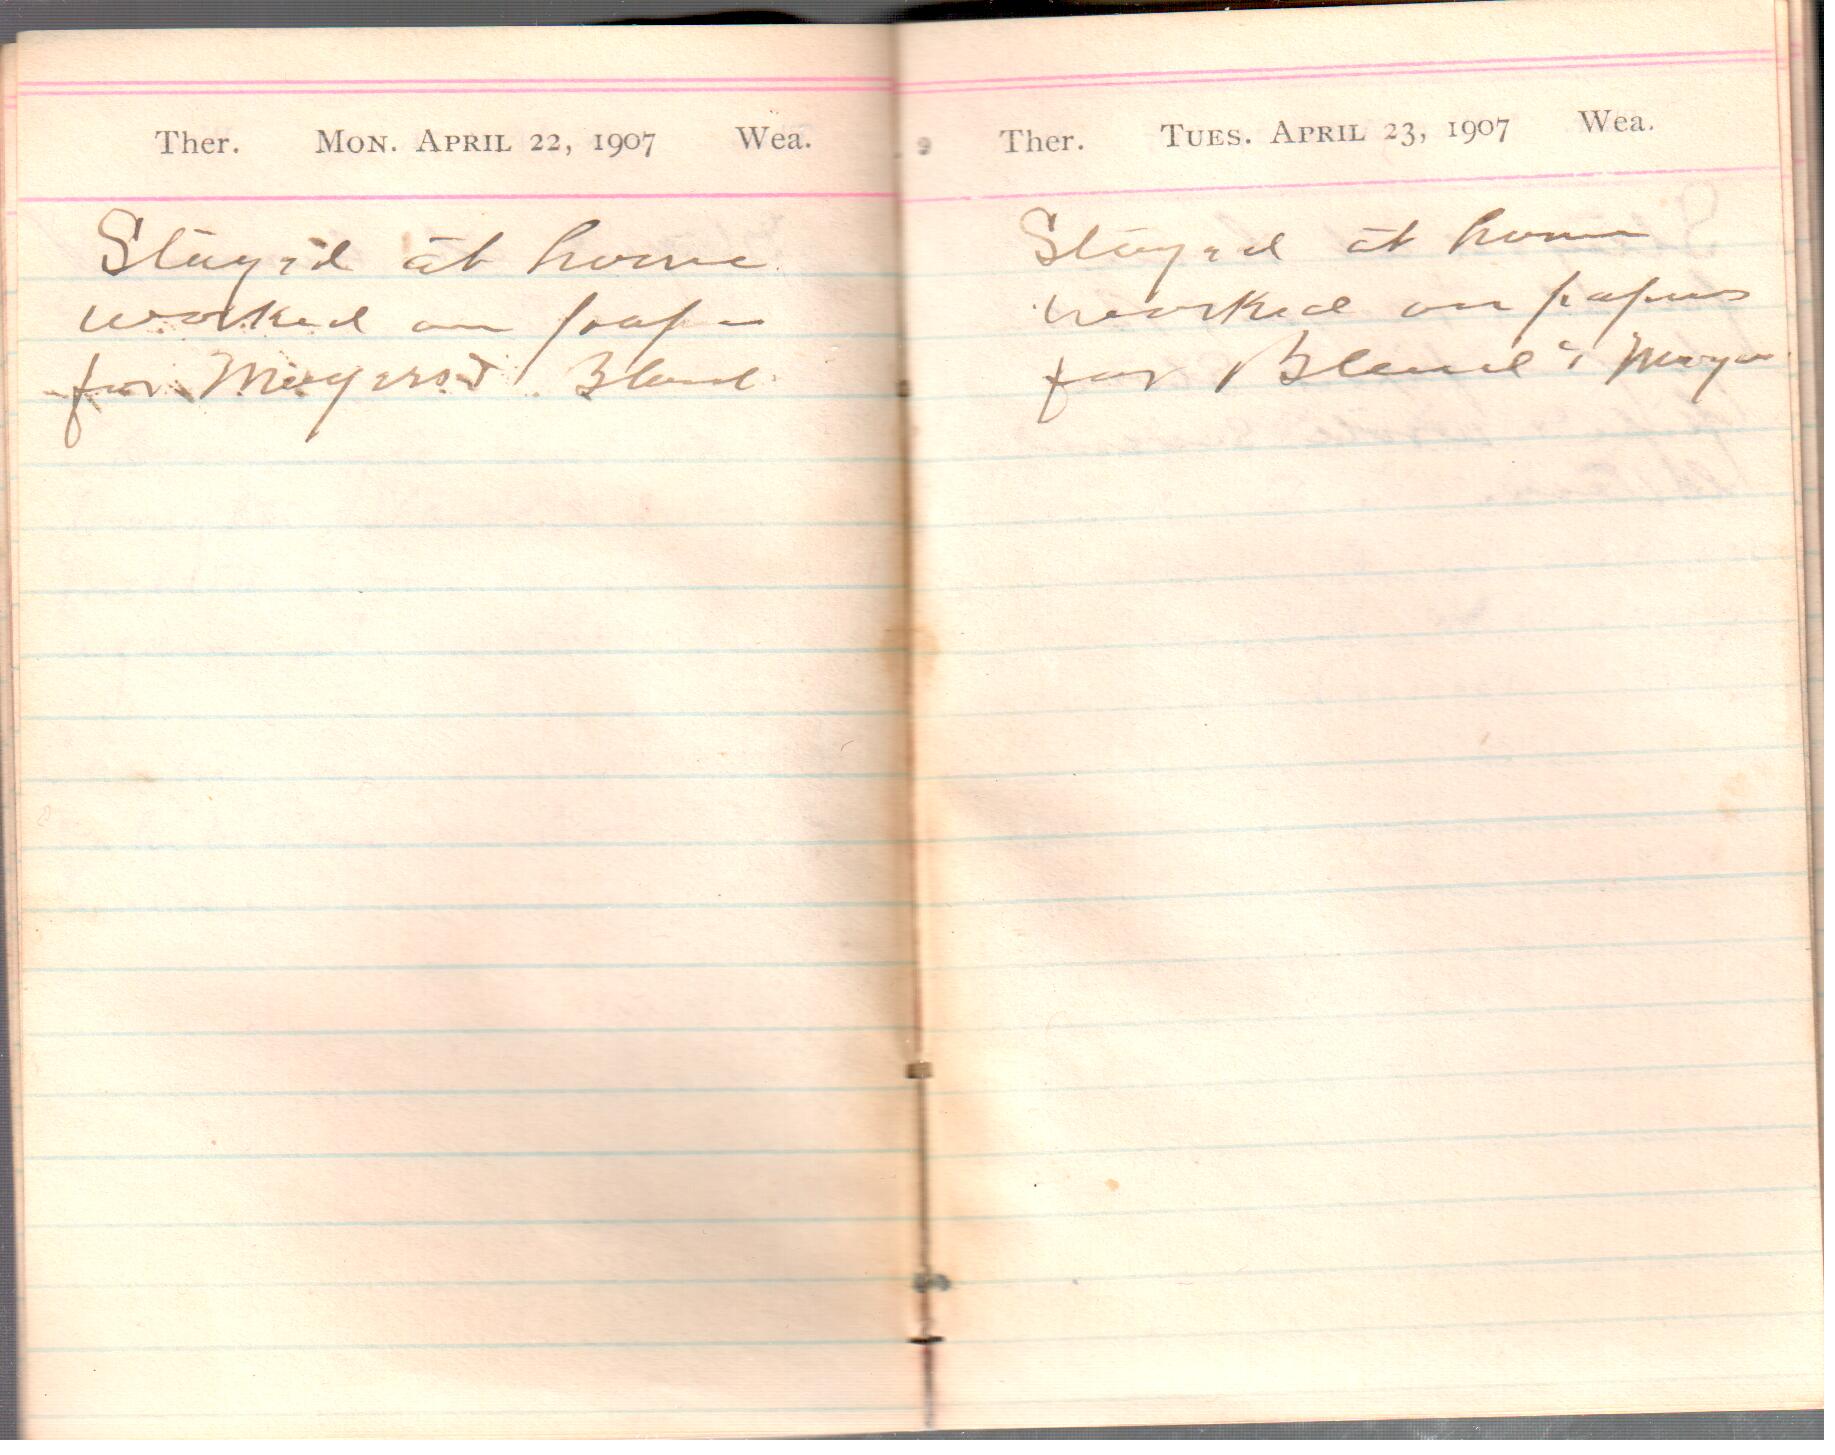 Ther. Mon. April 22, 1907 Wea.
Stayed at home
worked on paper
for Meyers & Bland
Ther. Tues. April 23, 1907 Wea.
Stayed at home
worked on papers
for Bland & Meyers